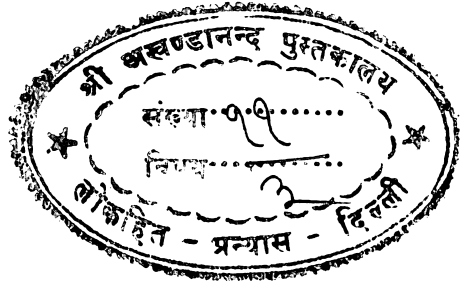 श्री अखण्डानन्द पुस्तकालय
संख्या ११
विषय
लोकहित - प्रन्यास - दिल्ली